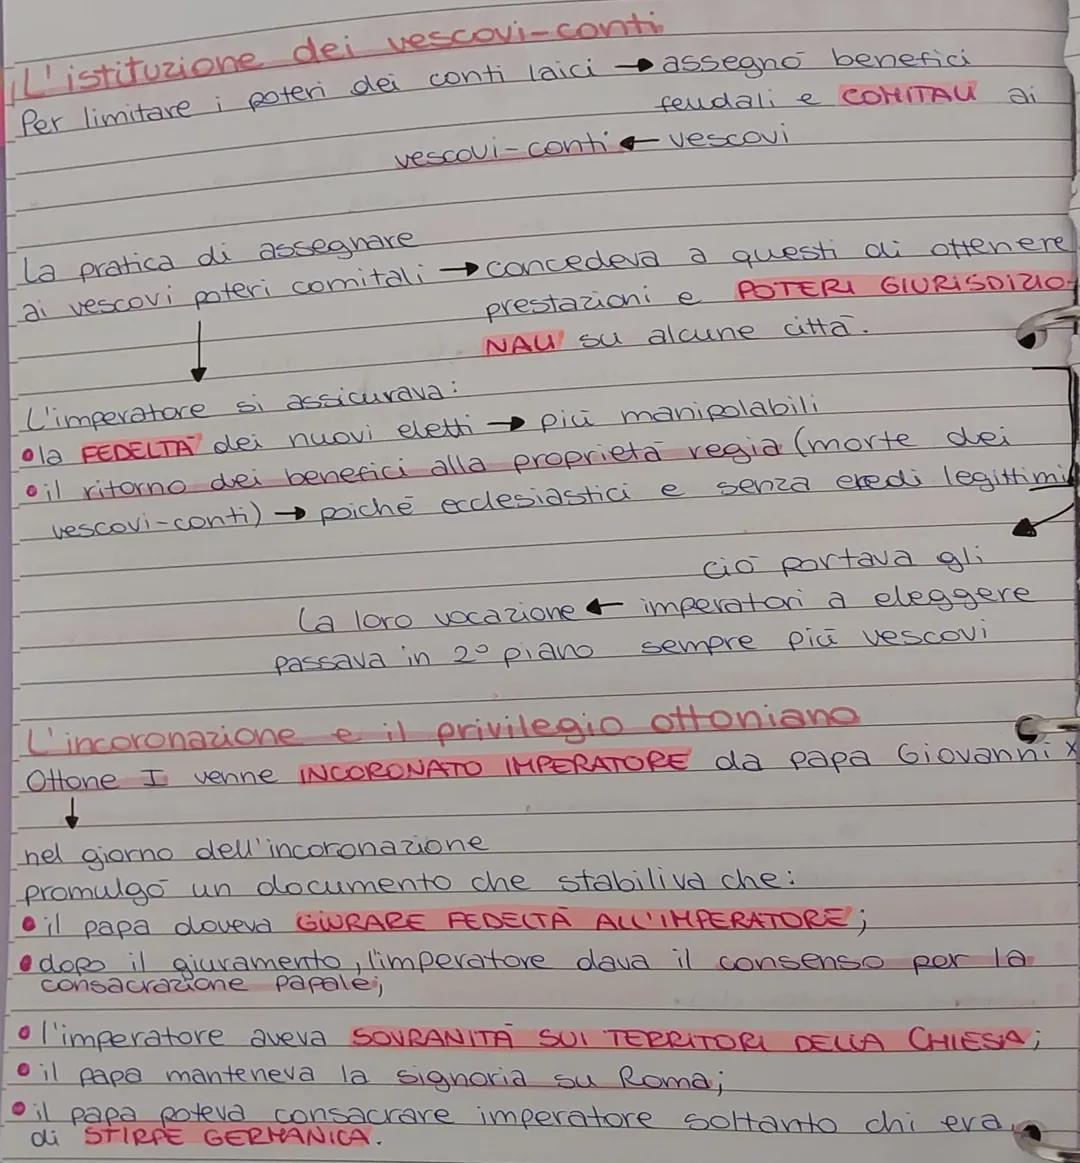 L'istituzione dei vescovi-conti
Per limitare i poteri dei conti laici → assegnò benefici
feudali e COMITALI ai
vescovi-conti ← vescovi
La pratica di assegnare
ai vescovi poteri comitali → concedeva a questi di ottenere
prestazioni e POTERI GIURISDIZIO-
NALI su alcune città.
↓
L'imperatore si assicurava:
• la FEDELTÀ dei nuovi eletti → più manipolabili
• il ritorno dei benefici alla proprietà regia (morte dei
vescovi-conti) → poiché ecclesiastici e senza eredi legittimi
ciò portava gli
la loro vocazione ← imperatori a eleggere
passava in 2° piano sempre più vescovi
L'incoronazione e il privilegio ottoniano
Ottone I venne INCORONATO IMPERATORE da papa Giovanni X
↓
nel giorno dell'incoronazione
promulgò un documento che stabiliva che:
• il papa doveva GIURARE FEDELTÀ ALL'IMPERATORE;
• dopo il giuramento, l'imperatore dava il consenso per la
consacrazione papale;
• l'imperatore aveva SOVRANITÀ SUI TERRITORI DELLA CHIESA;
• il papa manteneva la signoria su Roma;
• il papa poteva consacrare imperatore soltanto chi era
di STIRPE GERMANICA.